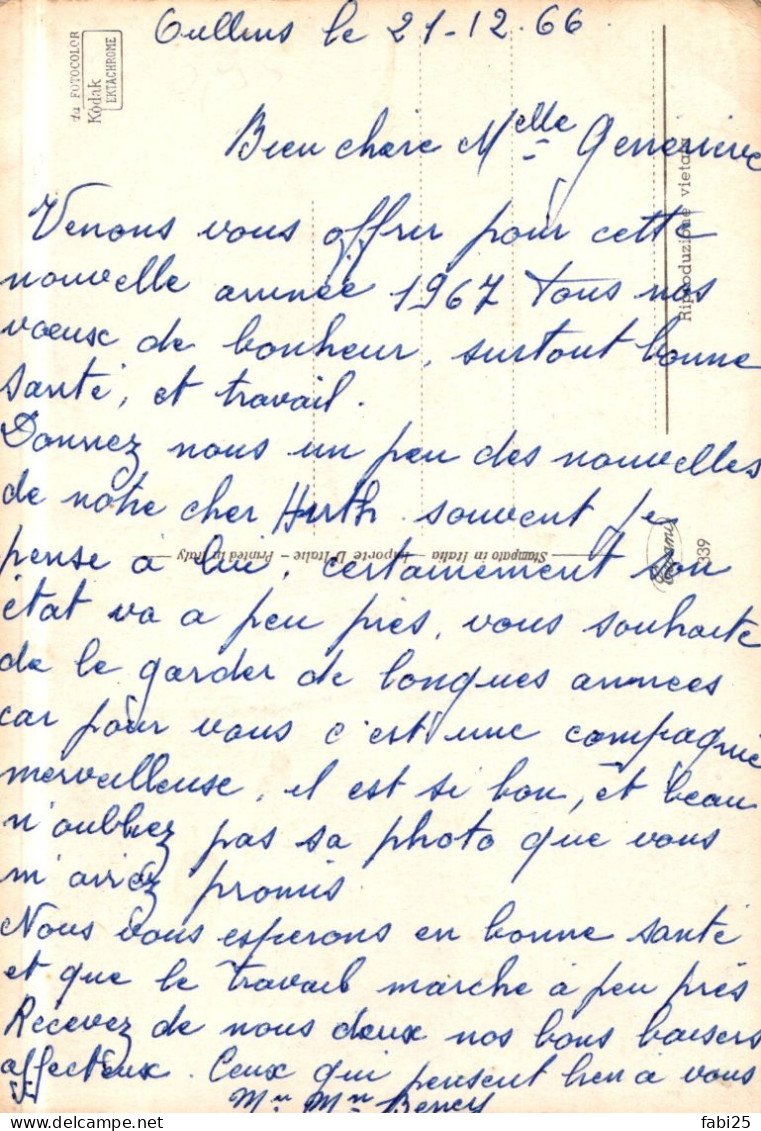 Oullins le 21-12-66
da FOTOCOLOR
Kodak
EKTACHROME
Bien chère Melle Geneviève
Venons vous offrir pour cette
nouvelle année 1967 tous nos
voeux de bonheur, surtout bonne
santé, et travail.
Donnez nous un peu des nouvelles
de notre cher Hirth souvent je
pense à lui, certainement son
état va a peu près, vous souhaite
de le garder de longues années
car pour vous c'est une compagnie
merveilleuse, il est si bon, et beau
n'oubliez pas sa photo que vous
m'aviez promis
Nous vous espérons en bonne santé
et que le travail marche à peu près
Recevez de nous deux nos bons baisers
affectueux. Ceux qui pensent bien à vous
Riproduzione vietata
Stampato in Italia - Importé D'Italie - Printed in Italy
339
fabi25